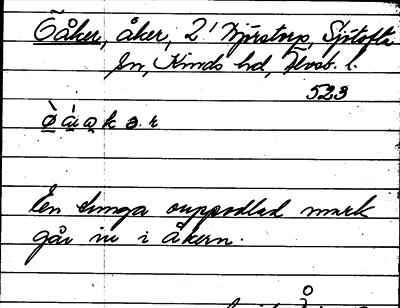 Öåker, åker, 2/ Björstorp, Sjötofta
sn, Kinds hd, Älvsb. l.
523
En tunga ouppodlad mark
går in i åkern.